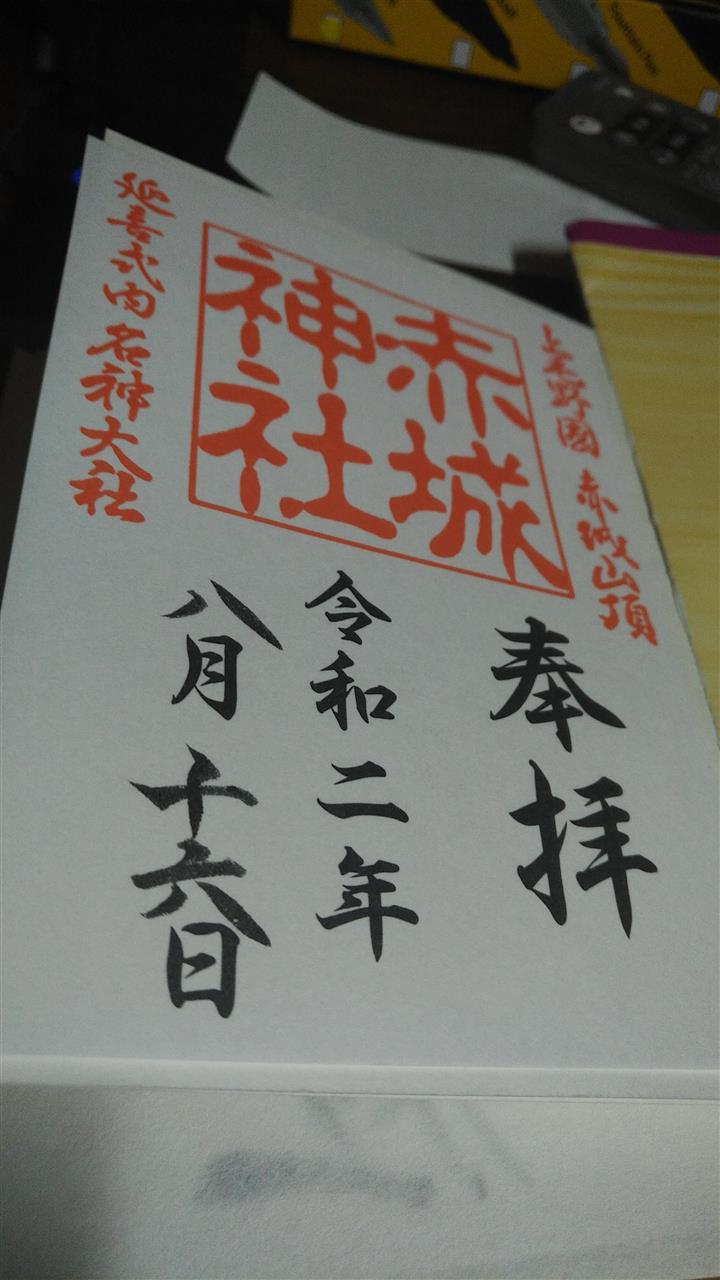 上毛野國 赤城山頂
奉拝
赤城
神社
令和二年
八月十六日
延喜式内名神大社
Fountain Pen